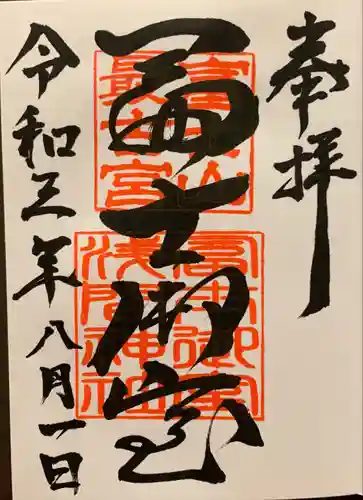 奉拝
冨士御室
冨士山
最古宮
冨士御室
浅間神社
令和三年八月一日